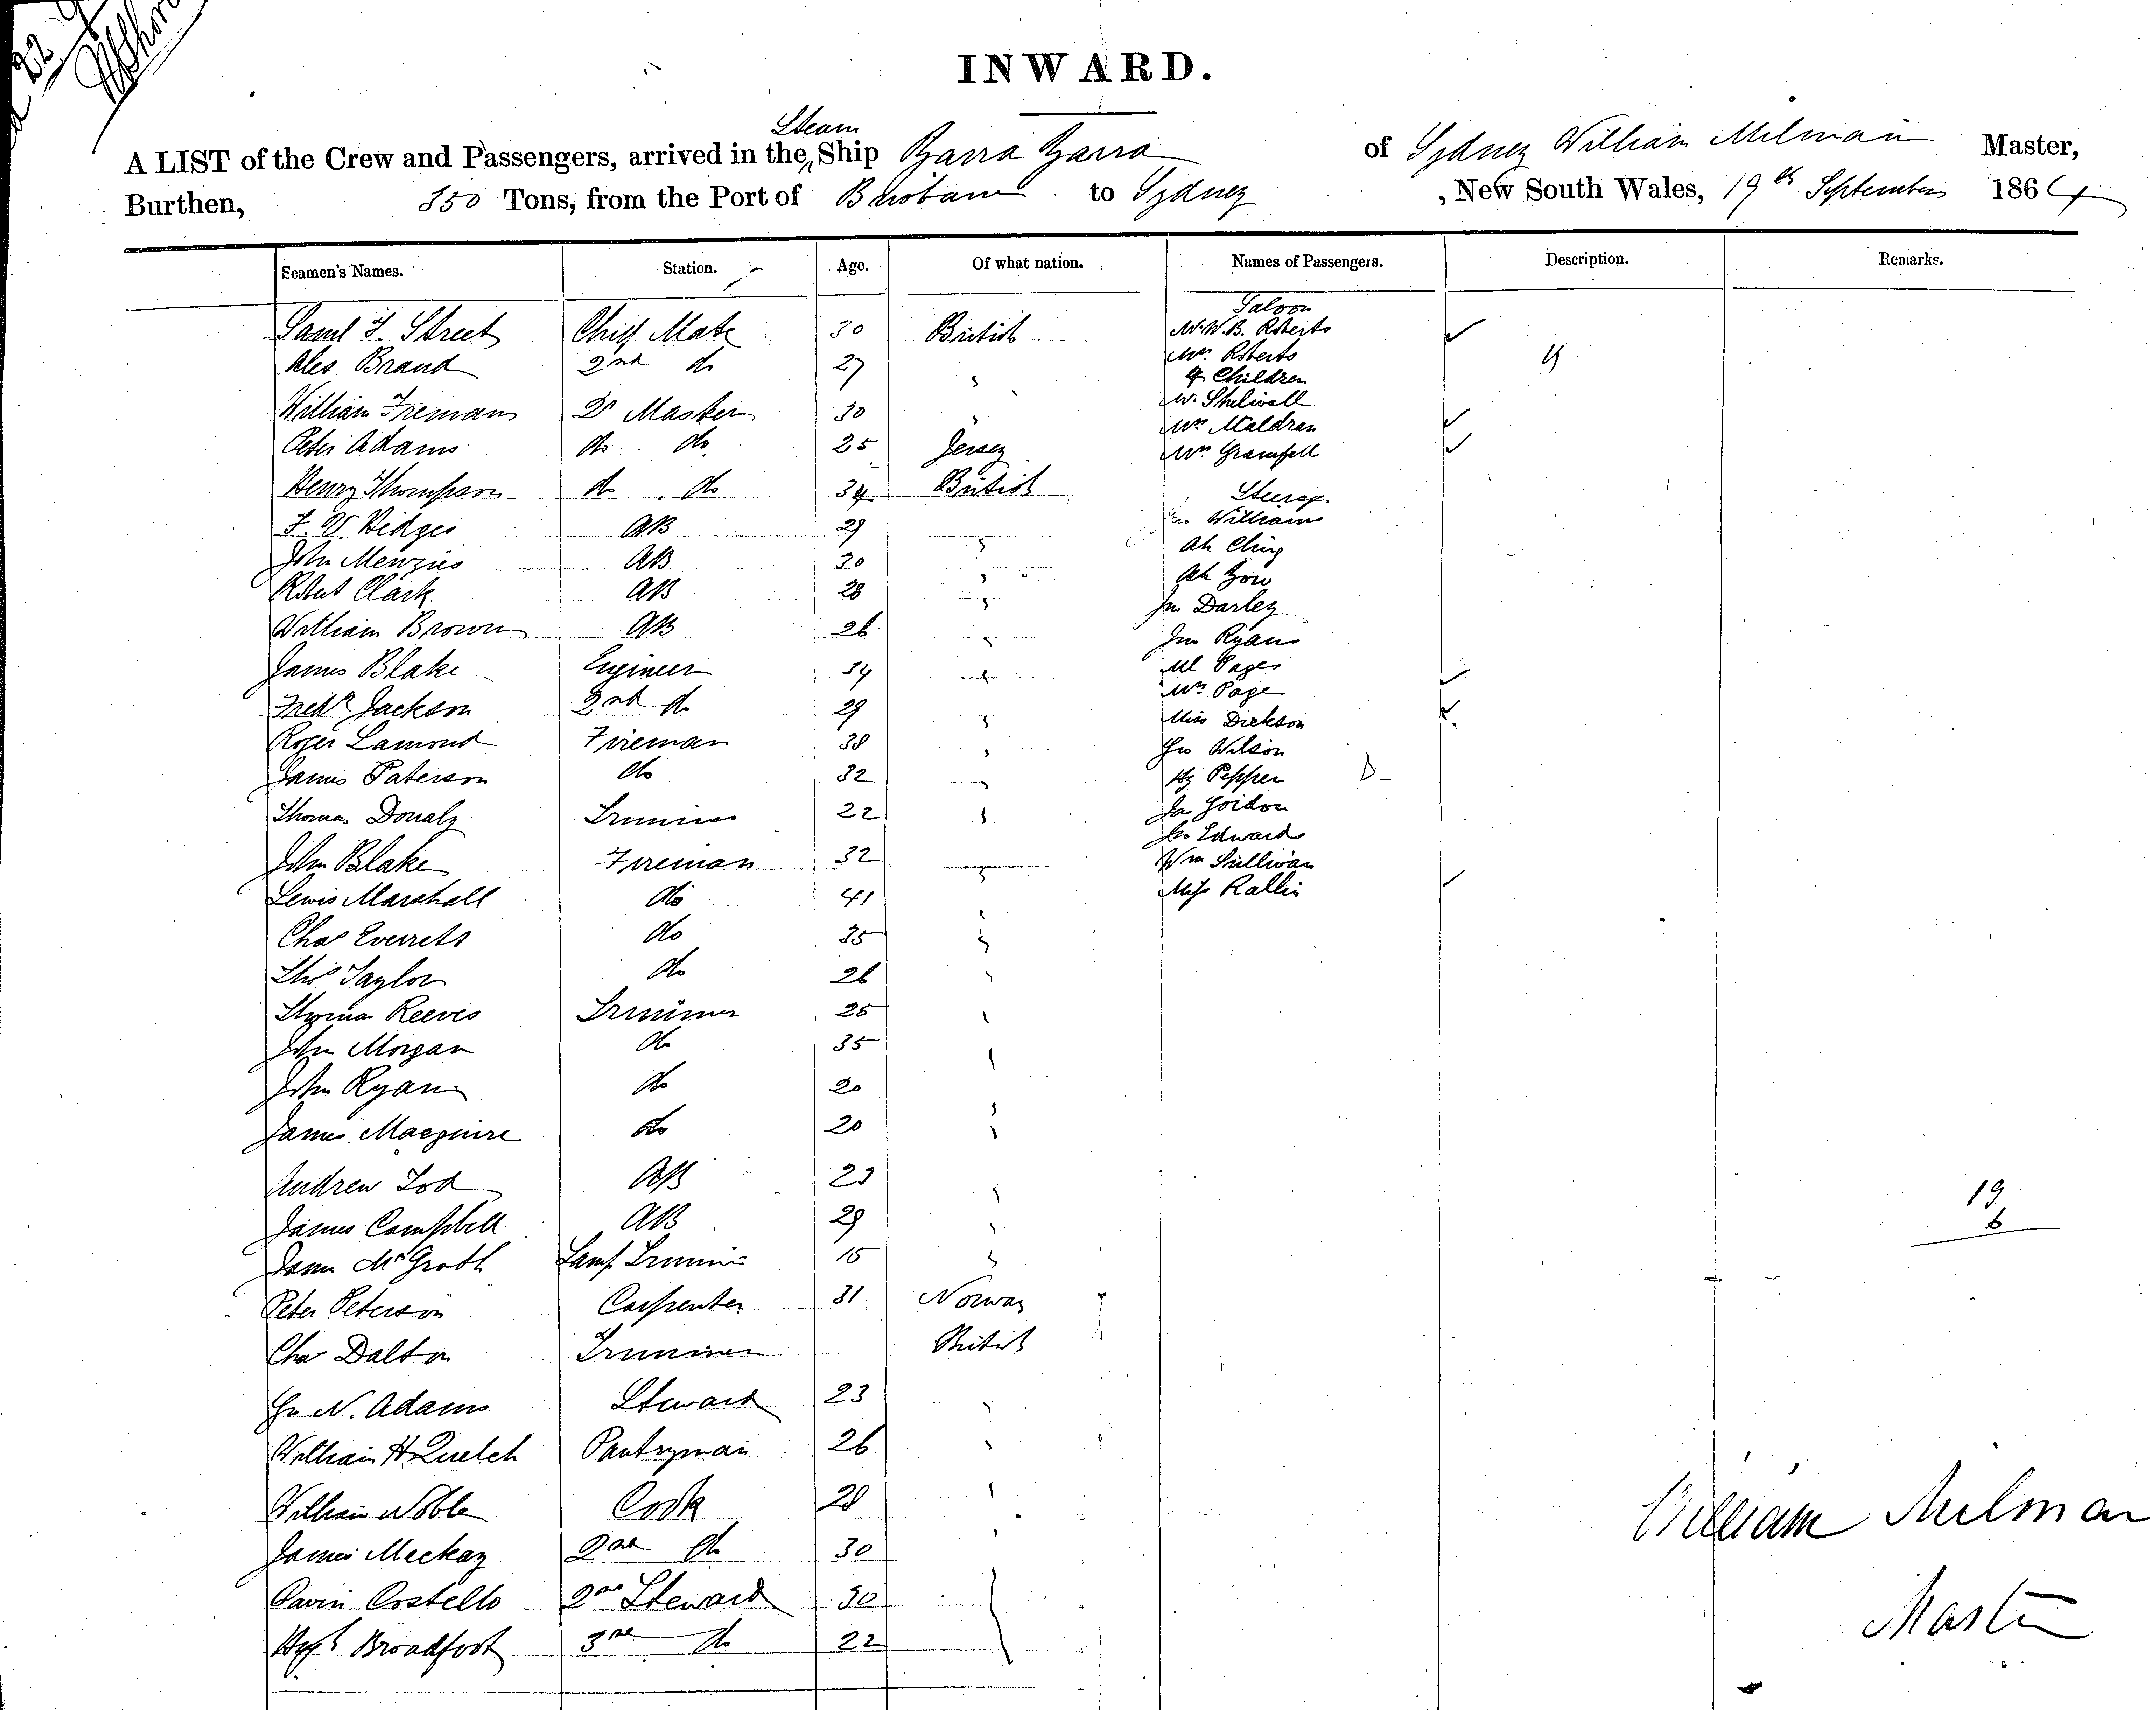 22
INWARD.
Steam
A LIST of the Crew and Passengers, arrived in the Ship Yarra Yarra of Sydney William Milman Master,
Burthen, 350 Tons, from the Port of Brisbane to Sydney, New South Wales, 19th September 1864
Seamen's Names. Station. Age. Of what nation. Names of Passengers. Description. Remarks.
Saloon
Saml F. Street Chief Mate 30 British Mr W.B. Roberts
Alex Brand 2nd do 27 " Mrs Roberts 4
4 Children
William Freeman Qr Master 30 " Mr Shelwall
Mrs Maldran
Peter Adams do do 25 Jersey Mrs Grainfell
Henry Thompson do do 34 British Steerage
F. W. Hedges AB 29 " Williams
John Menzies AB 30 " Ah Ching
Robert Clark AB 28 " Ah Gow
William Brown AB 26 " Jno Darley
Jno Ryan
James Blake Engineer 34 " Ml Pages
Mrs Page
Fredk Jackson 2nd do 29 " Miss Dickson
Roger Lamond Fireman 38 " Jno Wilson
James Paterson do 32 " Hy Pepper D
Thomas Donaly Trimmer 22 " Ja Gordon
Edwards
John Blake Fireman 32 " Wm Sullivan
Lewis Marshall do 41 " Miss Rallis
Chas Everrets do 35 "
Thos Taylor do 26 "
Thomas Reeves Trimmer 25 "
John Morgan do 35 "
John Ryan do 20 "
James Macguire do 20 "
Andrew Tod AB 23 "
19
James Campbell AB 29 "
6
James McGroth Lamp Trimmer 15 "
Peter Peterson Carpenter 31 Norway
Chas Dalton Trimmer British
Jno N. Adams Steward 23 "
William H Quelch Pantryman 26 "
William Noble Cook 28 "
William Milman
James Mackay 2nd do 30 "
Costello 2nd Steward 30
Master
Broadfoot 3rd do 22